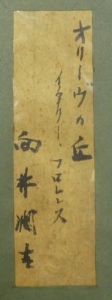 オリーヴの丘
イタリー・フロレンス
向井潤吉